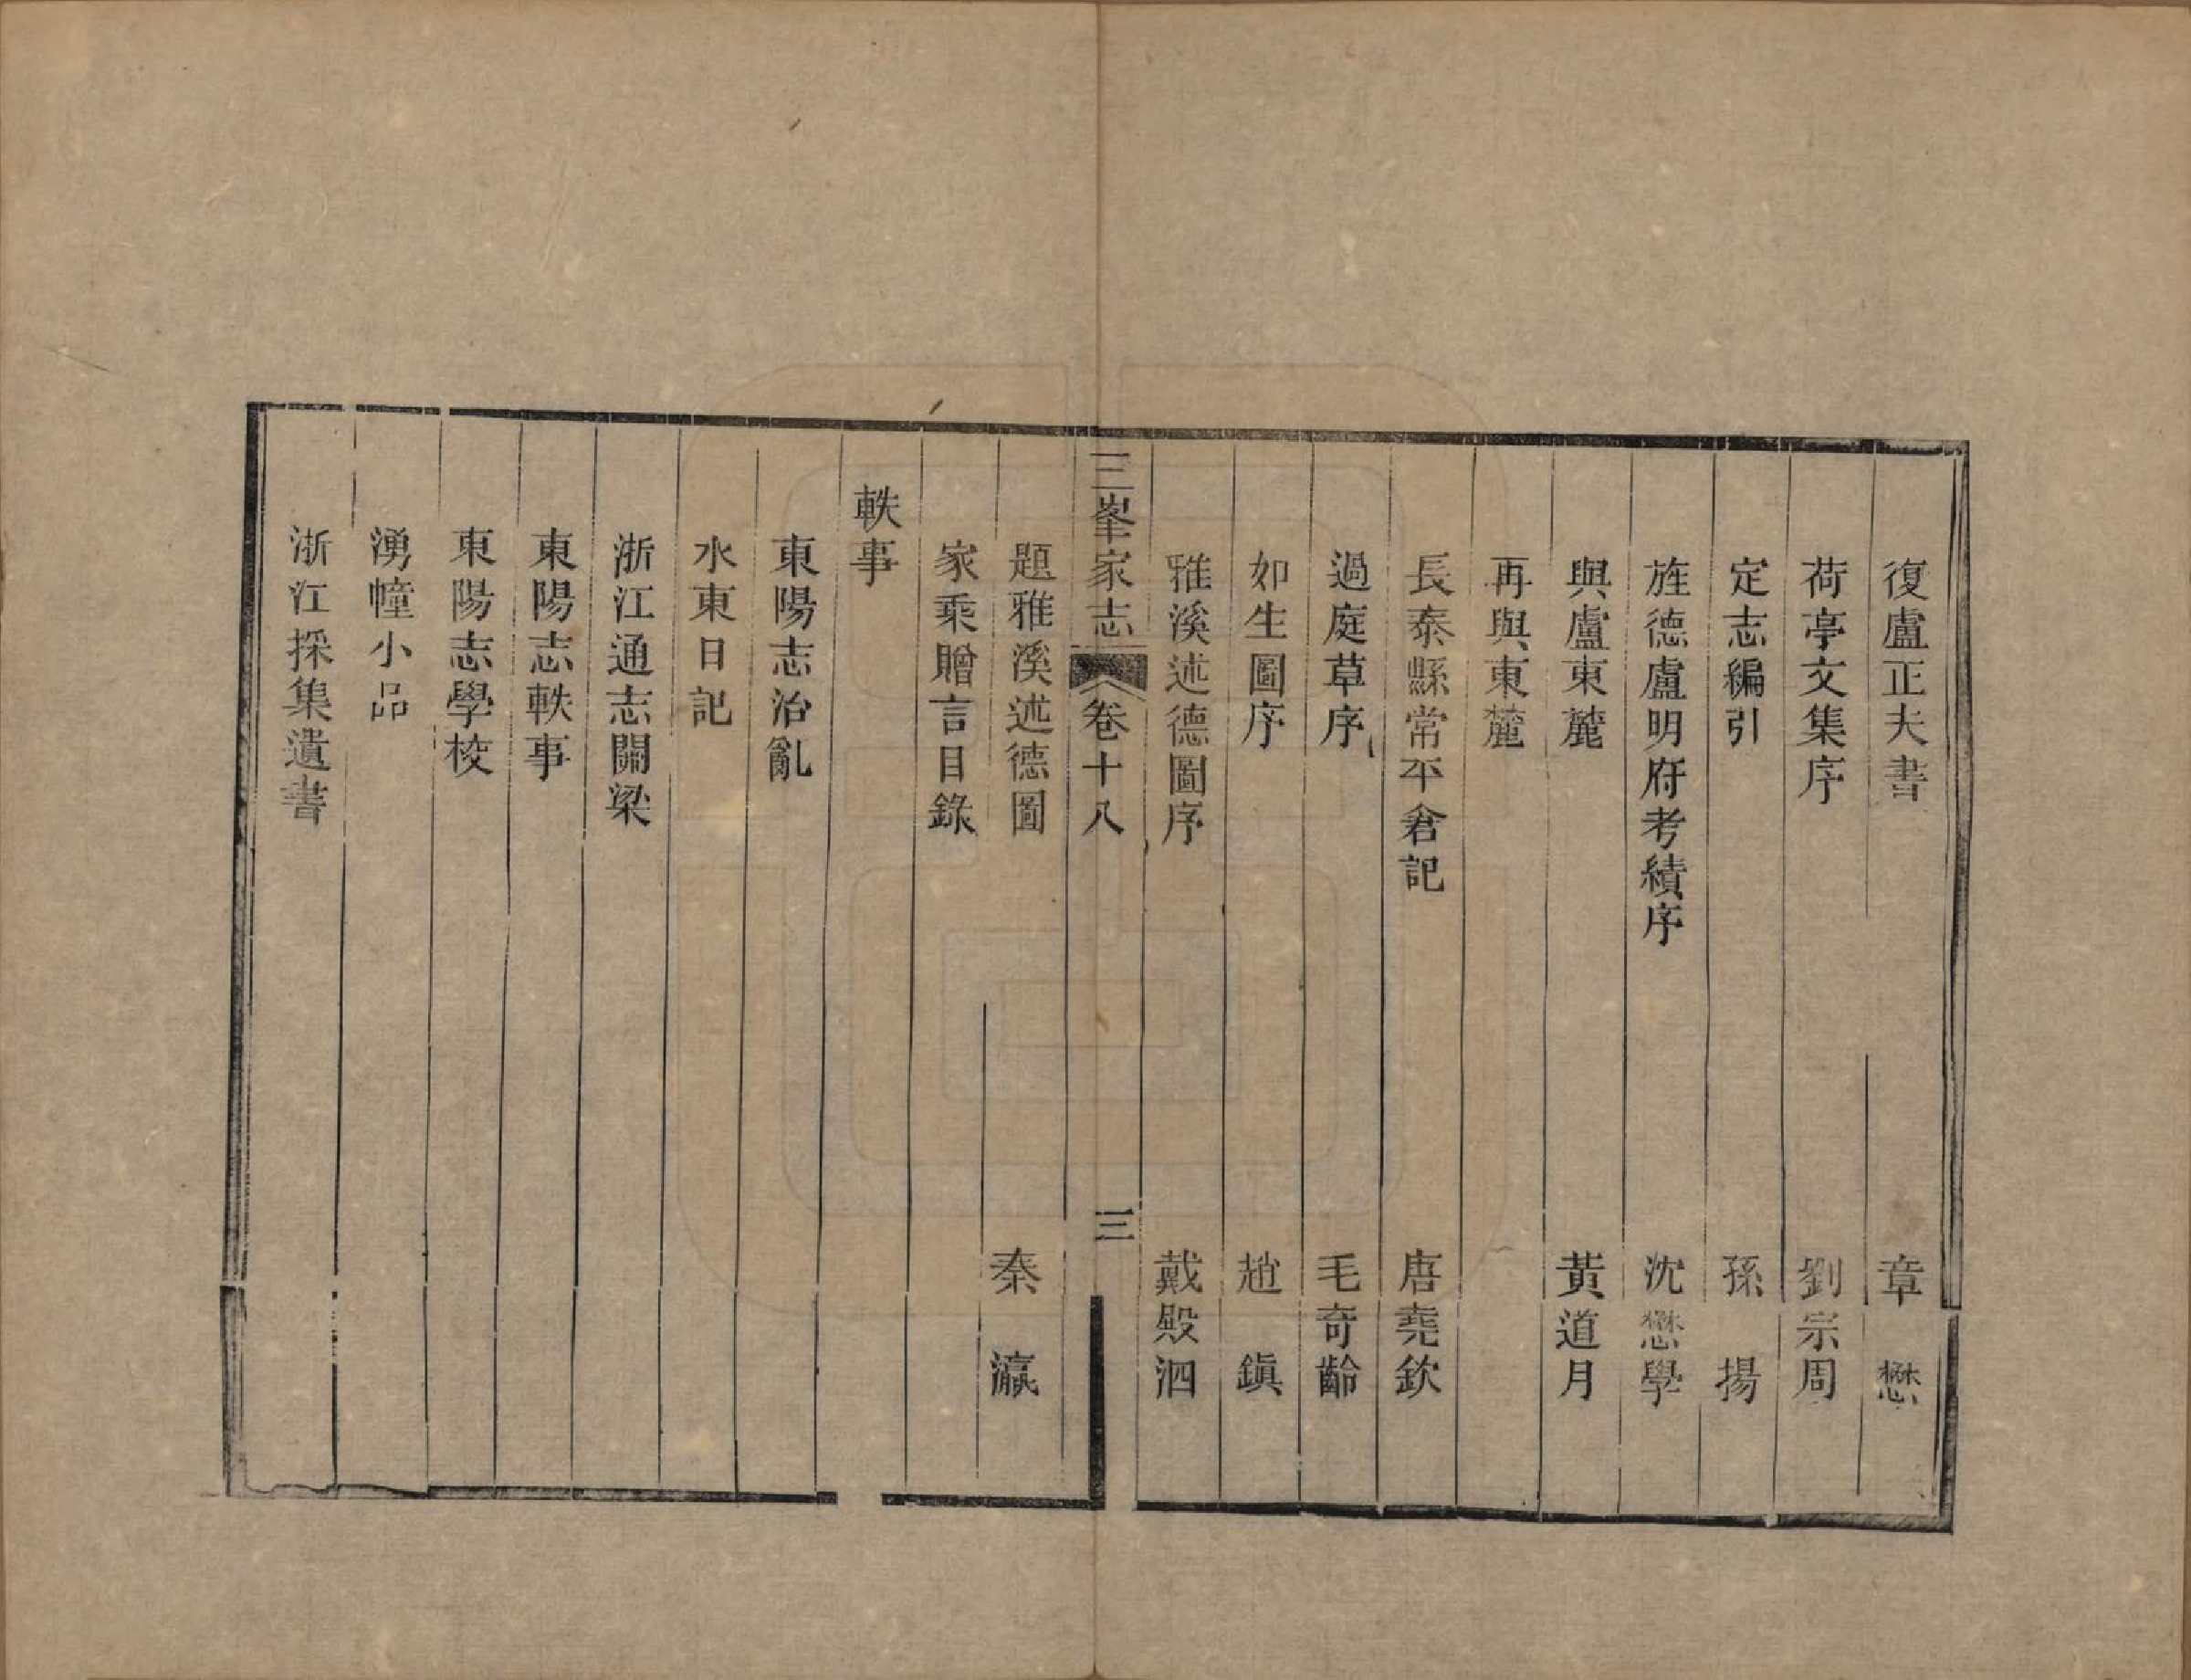 復盧正夫書　章　懋
荷亭文集序　劉宗周
定志編引　孫　揚
旌德盧明府考績序　沈懋學
與盧東麓　黃道月
再與東麓
長泰縣常平倉記　唐堯欽
過庭草序　毛奇齡
如生圖序　趙　鎮
雅溪述德圖序　戴殿泗
三峯家志　卷十八　三
題雅溪述德圖　秦　瀛
家乘贈言目錄
軼事
東陽志治亂
水東日記
浙江通志關梁
東陽志軼事
東陽志學校
湧幢小品
浙江採集遺書